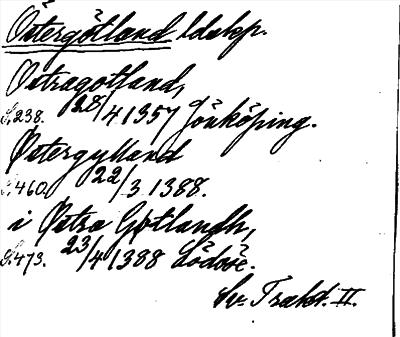 Östergötland ldskp.
Ostragotland,
S.238. 28/4 1357 Jönköping.
Østergylland
S.460. 22/3 1388.
i Østra Gøtlandh,
S.473. 23/4 1388 Lödöse.
Sv. Trakt. II.